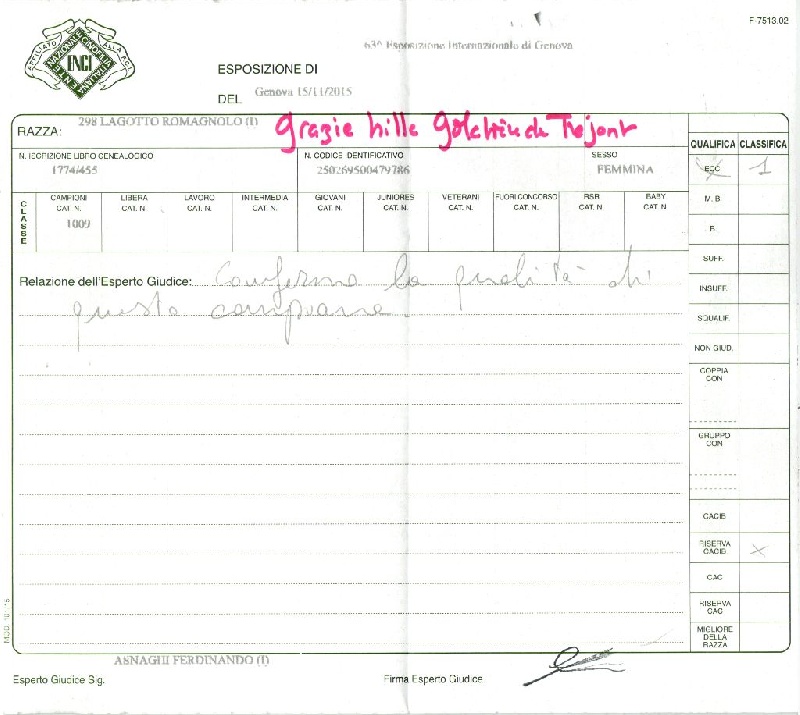 F 7513.02
AFFILIATO ALLA FCI
ENCI
63^ Esposizione Internazionale di Genova
ESPOSIZIONE DI
DEL Genova 15/11/2015
RAZZA: 298 LAGOTTO ROMAGNOLO (I)
grazie hille
QUALIFICA CLASSIFICA
N. ISCRIZIONE LIBRO GENEALOGICO N. CODICE IDENTIFICATIVO SESSO
1774/455 250269500479786 FEMMINA
ECC. 1
CLASSE
CAMPIONI CAT. N. LIBERA CAT. N. LAVORO CAT. N. INTERMEDIA CAT. N. GIOVANI CAT. N. JUNIORES CAT. N. VETERANI CAT. N. FUORI CONCORSO CAT. N. RSR CAT. N. BABY CAT. N.
1009
M. B.
B.
SUFF.
Relazione dell'Esperto Giudice: Conferma la qualità di
questa campiona
INSUFF.
SQUALIF.
NON GIUD.
COPPIA CON
GRUPPO CON
CACIB
RISERVA CACIB X
CAC
RISERVA CAC
MIGLIORE DELLA RAZZA
ASNAGHI FERDINANDO (I)
Esperto Giudice Sig. Firma Esperto Giudice